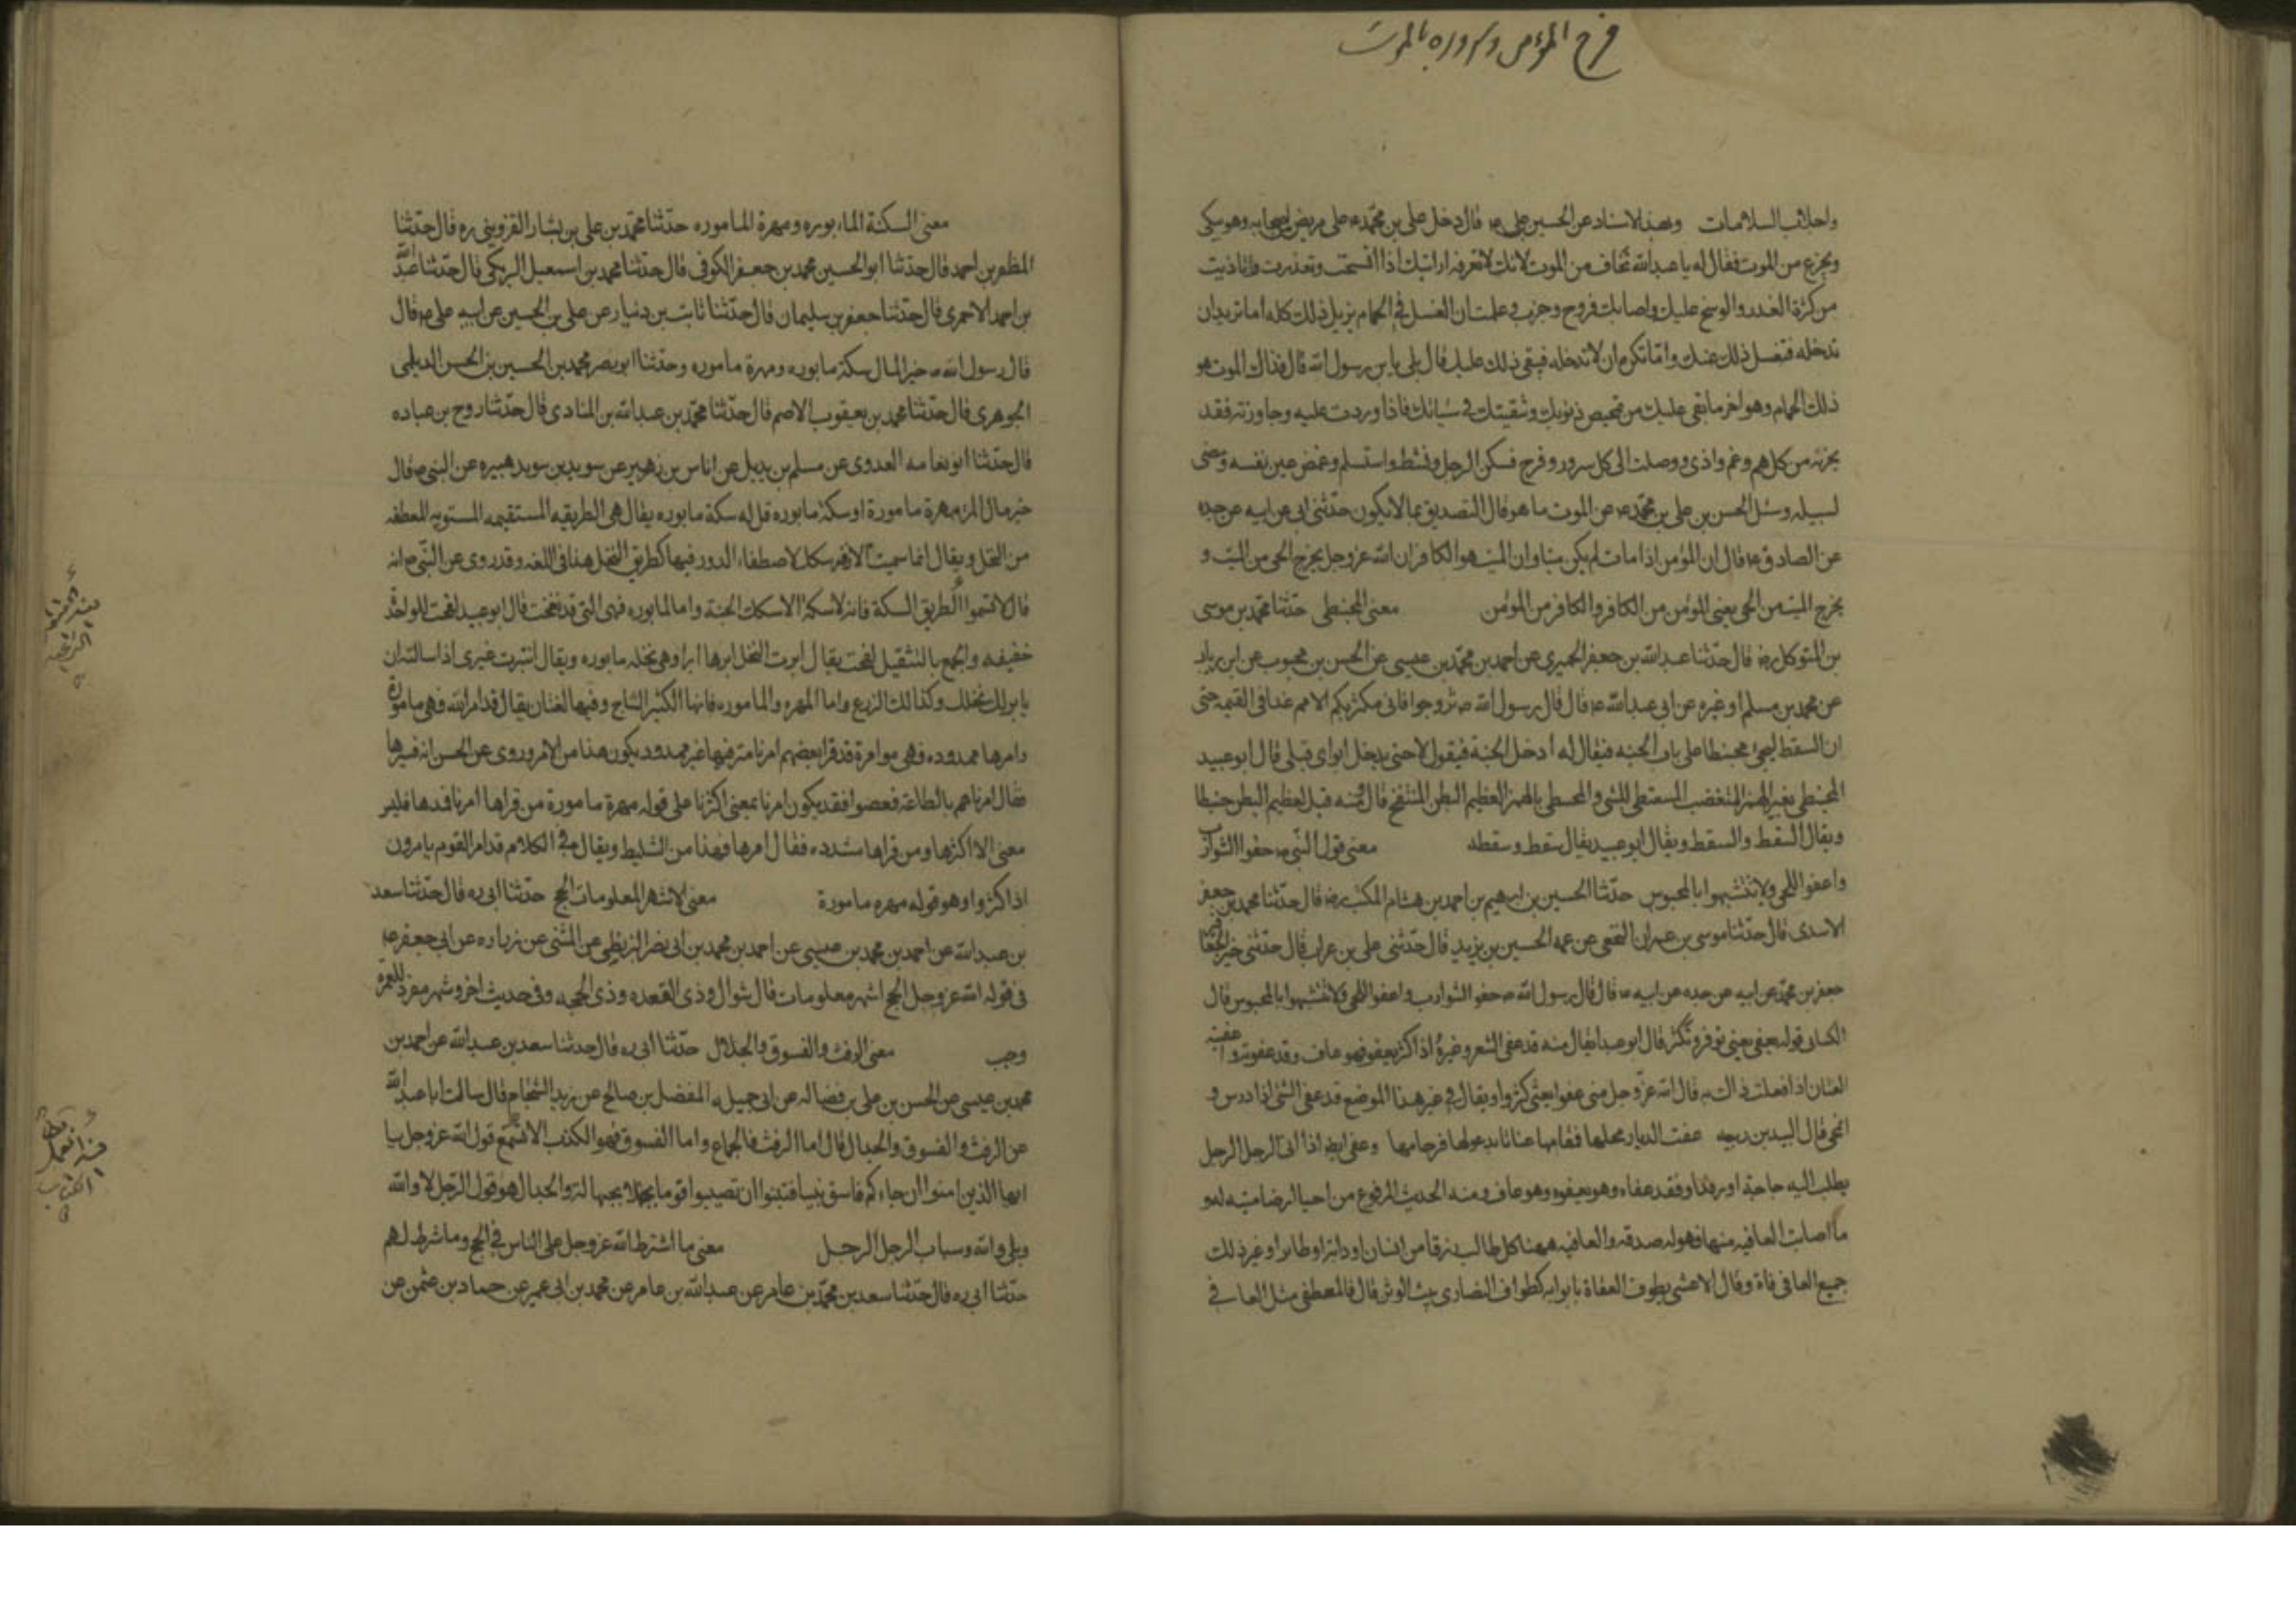 فرح المؤمن وسروره بالموت
واجلائب السلامات وبهذا الاسناد عن الحسين بن علي ع قال دخل علي بن محمد ع على مريض من اصحابه وهو يبكى
ويجزع من الموت فقال له يا عبد الله تخاف من الموت لانك لا تعرفه ارايتك اذا اتسخت وتقذرت وتاذيت
من كثرة القذر والوسخ عليك واصابك قروح وجرب وعلمت ان الغسل في الحمام يزيل ذلك كله اما تريد ان
تدخله فتغسل ذلك عنك واما تكره ان لا تدخله فيبقى ذلك عليك قال بلى يا بن رسول الله قال فذاك الموت هو
ذلك الحمام وهو اخر ما بقى عليك من تمحيص ذنوبك وتنقيتك من سيئاتك فاذا وردت عليه وجاوزته فقد
نجوت من كل هم وغم واذى ووصلت الى كل سرور وفرح فسكن الرجل ونشط واستسلم وغمض عين نفسه ومضى
لسبيله وسئل الحسن بن علي بن محمد ع عن الموت ما هو قال التصديق بما لا يكون حدثنى ابى عن ابيه عن جده
عن الصادق ع قال ان المؤمن اذا مات لم يكن ميتا وان الميت هو الكافر ان الله عز وجل يخرج الحى من الميت و
يخرج الميت من الحى يعنى المؤمن من الكافر والكافر من المؤمن معنى المحبنطى حدثنا محمد بن موسى
بن المتوكل ره قال حدثنا عبد الله بن جعفر الحميرى عن احمد بن محمد بن عيسى عن الحسن بن محبوب عن ابن رياب
عن محمد بن مسلم او غيره عن ابى عبد الله ع قال قال رسول الله ص تزوجوا فانى مكثر بكم الامم غدا فى القيمة حتى
ان السقط ليجئ محبنطا على باب الجنه فيقال له ادخل الجنة فيقول لا حتى يدخل ابواى قبلى قال ابو عبيد
المحبنطى بغير الهمز المتغضب المستبطى للشى والمحبنطى بالهمز العظيم البطن المنتفخ قال ومنه قيل لعظيم البطن حبنطا
ويقال السقط والسقط ويقال ابو عبيد يقال سقط وسقط وسقط معنى قول النبى ص حفوا الشوارب
واعفوا اللحى ولا تتشبهوا بالمجوس حدثنا الحسين بن ابرهيم بن احمد بن هشام المكتب ره قال حدثنا محمد بن جعفر
الاسدى قال حدثنا موسى بن عمران النخعى عن عمه الحسين بن يزيد قال حدثنى على بن غراب قال حدثنى خير الجعافر
جعفر بن محمد عن ابيه عن جده عن ابيه ع قال قال رسول الله ص حفوا الشوارب واعفوا اللحى ولا تتشبهوا بالمجوس قال
الكسائى قوله يعفى يعنى توفر وتكثر قال ابو عبيد يقال منه قد عفى الشعر وغيره اذا كثر يعفو فهو عاف وقد عفوته وا عفيته
لغتان اذا فعلت ذلك به قال الله عز وجل حتى عفوا يعنى كثروا ويقال فى غير هذا الموضع قد عفى الشئ اذا درس و
انمحى قال لبيد بن ربيعه عفت الديار محلها فمقامها وعفى ايضا اذا اتى الرجل الرجل
يطلب اليه حاجة او رفدا فقد عفاه وهو يعفوه وهو عاف ومنه الحديث المرفوع من احيا ارضا ميته له و
ما اصابت العافيه منها فهو له صدقه والعافيه ههنا كل طالب رزقا من انسان او دابة او طائر او غير ذلك
جميع العافى عفاة وقال الاعشى يطوف العفاة بابوابه كطواف النصارى ببيت الوثن قال فالمعطفى مثل العافى
معنى السكة المابوره ومهرة الماموره حدثنا محمد بن على بن بشار القزوينى ره قال حدثنا
المظفر بن احمد قال حدثنا ابو الحسين محمد بن جعفر الكوفى قال حدثنا محمد بن اسمعيل البرمكى قال حدثنا عبد الله
بن احمد الاحمرى قال حدثنا جعفر بن سليمان قال حدثنا ثابت بن دنيار عن على بن الحسين عن ابيه على ع قال
قال رسول الله ص خير المال سكة مابوره ومهرة ماموره وحدثنا ابو نصر محمد بن الحسين بن الحسن الديلمى
الجوهرى قال حدثنا محمد بن يعقوب الاصم قال حدثنا محمد بن عبد الله بن المنادى قال حدثنا روح بن عباده
قال حدثنا ابو نعامه العدوى عن مسلم بن بديل عن اياس بن زهير عن سويد بن هبيره عن النبى ص قال
خير مال المرء مهرة مامورة او سكة مابوره قوله سكة مابوره يقال هى الطريقه المستقيمه المستويه المصطفه
من النخل ويقال انما سميت الازقه سككا لاصطفاء الدور فيها كطريق النخل هذا فى اللغه وقد روى عن النبى ص انه
قال لا تسموا الطريق السكة فانه لا سكة الا سكك الجنة واما المابوره فهى التى قد لقحت قال ابو عبيد لقحت للواحدة
خفيفه والجمع بالتثقيل لقحت يقال ابرت النخل ابرها ابرا وهى نخله مابوره ويقال ائتبرت غيرى اذا سالته ان
يابر لك نخلك وكذلك الزرع واما المهره والماموره فانها الكثيرة النتاج وفيها لغتان يقال قد امرها الله فهى مامورة
وامرها ممدوده فهى مؤمرة وقد قرا بعضهم امرنا مترفيها غير ممدود يكون هذا من الامر وروى عن الحسن انه فسرها
فقال امرناهم بالطاعة فعصوا وقد يكون امرنا بمعنى اكثرنا على قوله مهرة مامورة من قراها امرنا فمدها فليس
معنى الا اكثرها ومن قراها مشدده فقال امرها فهذا من التسليط ويقال فى الكلام قد امر القوم يامرون
اذا كثروا وهو قوله مهره مامورة معنى الاشهر المعلومات للحج حدثنا ابى ره قال حدثنا سعد
بن عبد الله عن احمد بن محمد بن عيسى عن احمد بن محمد بن ابى نصر البزنطى عن المثنى عن زراره عن ابى جعفر ع
فى قول الله عز وجل الحج اشهر معلومات قال شوال وذى القعده وذى الحجه وفى حديث اخر وشهر مفرد للعمرة
رجب معنى الرفث والفسوق والجدال حدثنا ابى ره قال حدثنا سعد بن عبد الله عن احمد بن
محمد بن عيسى عن الحسن بن على بن فضاله عن ابى جميله المفضل بن صالح عن زيد الشحام قال سالت ابا عبد الله
عن الرفث والفسوق والجدال قال اما الرفث فالجماع واما الفسوق فهو الكذب الا تسمع قول الله عز وجل يا
ايها الذين امنوا ان جاءكم فاسق بنبا فتبينوا ان تصيبوا قوما بجهالة والجدال هو قول الرجل لا والله
وبلى والله وسباب الرجل الرجل معنى ما اشترط الله عز وجل على الناس فى الحج وما شرط لهم
حدثنا ابى ره قال حدثنا سعد بن محمد بن عامر عن عبد الله بن عامر عن محمد بن ابى عمير عن حماد بن عثمن عن